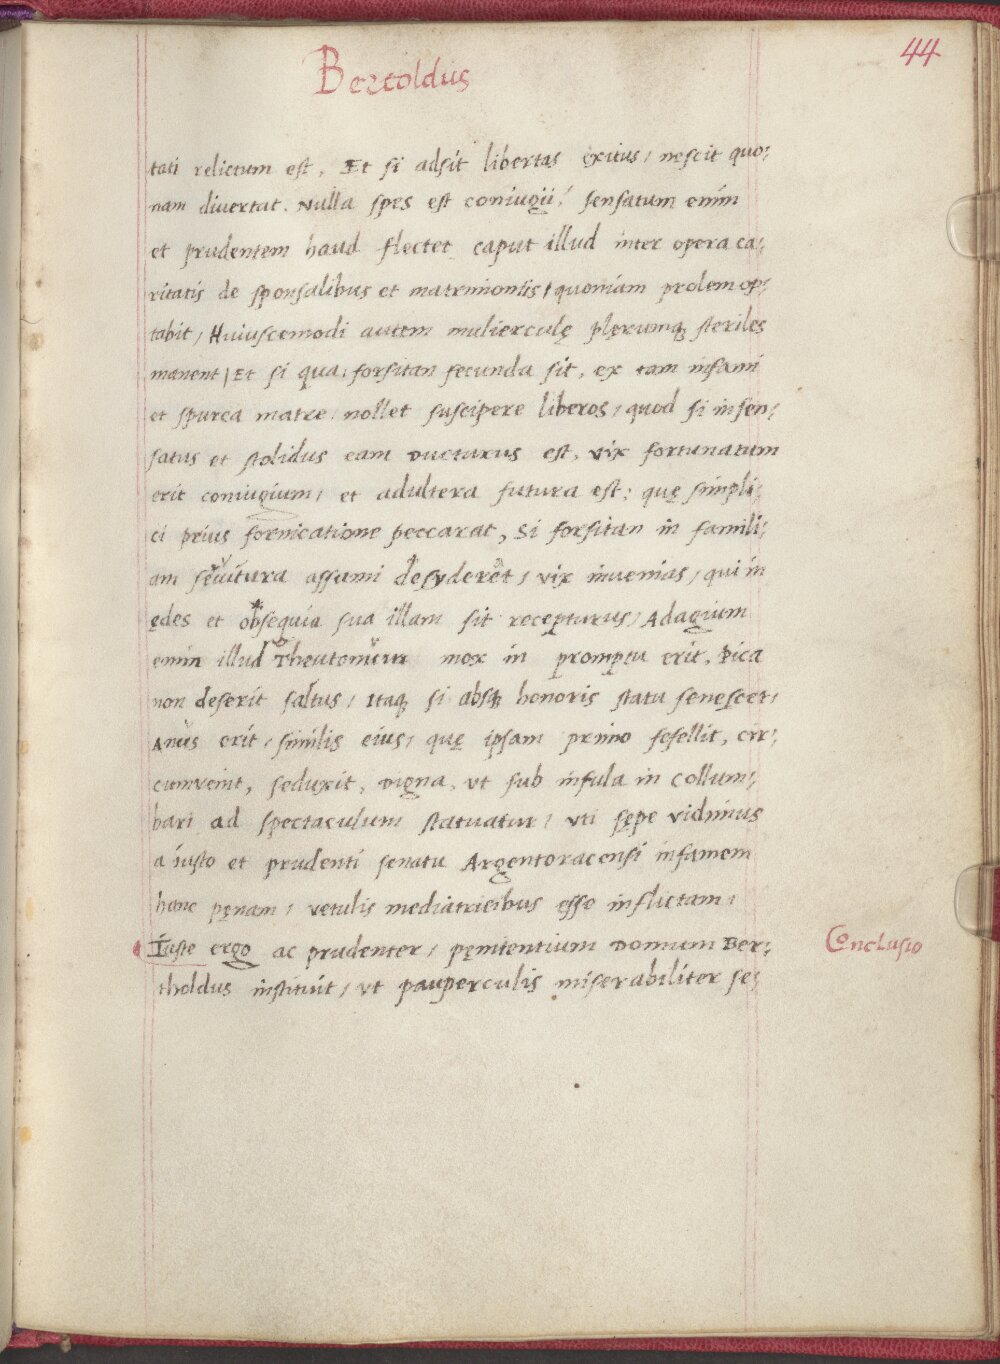 44
Bertoldus
tati relictum est, Et si adsit libertas exitus, nescit quo:
nam divertat. Nulla spes est coniugij, sensatum enim
et prudentem haud flectet caput illud inter opera ca:
ritatis de sponsalibus et matrimoniis, quoniam prolem op:
tabit, Huiuscemodi autem mulierculę plęrumq; steriles
manent, Et si qua, forsitan fecunda sit, ex tam infami
et spurca matre, nollet suscipere liberos, quod si insen:
satus et stolidus eam ducturus est, vix fortunatum
erit coniugium, et adultera futura est: quę simpli:
ci prius fornicatione peccarat, Si forsitan in famili:
am seruitura assumi desyderet, vix invenias, qui in
ędes et obsequia sua illam sit recepturus, Adagium
enim illud Theutonicum mox in promptu erit, Pica
non deserit saltus, Itaq; si absq; honoris statu senescet,
Anus erit, similis eius, quę ipsam primo fefellit, cir:
cumvenit, seduxit, Digna, vt sub infula in collum:
bari ad spectaculum statuatur, vti sępe vidimus
a iusto et prudenti senatu Argentoracensi infamem
hanc pęnam, vetulis mediatricibus esse inflictam,
Iuste ergo ac prudenter, pęnitentium Domum Ber:
Conclusio
tholdus instituit, vt pauperculis miserabiliter se: